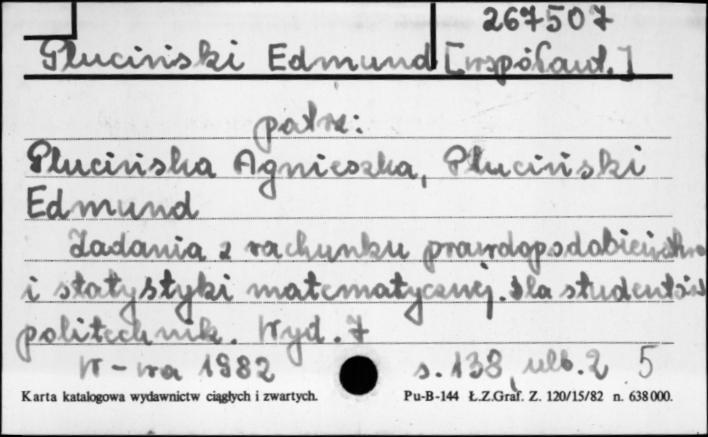 267507
Pluciński Edmund [współaut.]
patrz:
Plucińska Agnieszka, Pluciński
Edmund
Zadania z rachunku prawdopodobieństwa
i statystyki matematycznej. Dla studentów
politechnik. Wyd. 7
W-wa 1982 s. 138, nlb. 2 5
Karta katalogowa wydawnictw ciągłych i zwartych. Pu-B-144 Ł.Z.Graf. Z. 120/15/82 n. 638000.